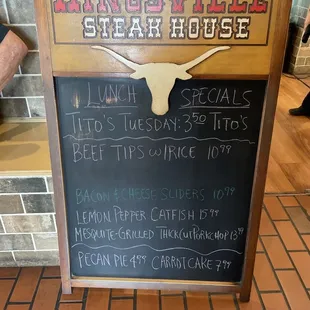 KINGSVILLE
STEAK HOUSE
LUNCH SPECIALS
TITO'S TUESDAY: 3.50 TITO'S
BEEF TIPS W/RICE 10.99
BACON & CHEESE SLIDERS 10.99
LEMON PEPPER CATFISH 15.99
MESQUITE-GRILLED THICK CUT PORKCHOP 13.99
PECAN PIE 4.99 CARROT CAKE 7.99